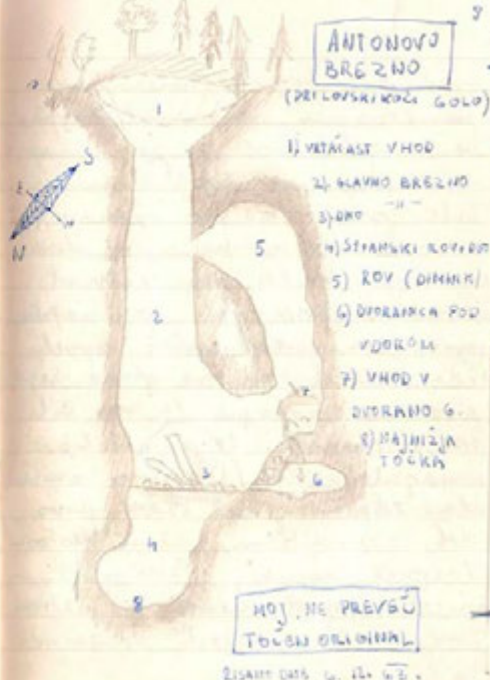 8
ANTONOVO
BREZNO
(PRI LOVSKI KOČI GOLO)
1) VRTAČAST VHOD
2) GLAVNO BREZNO
3) DNO -"-
4) STRANSKI
5) ROV (DIMNIK)
6) DVORANICA POD
VDOROM
7) VHOD V
DVORANO 6.
8) NAJNIŽJA
TOČKA
S
N
1
2
5
7
3
6
4
8
MOJ, NE PREVEČ
TOČEN ORIGINAL
RISANO DNE